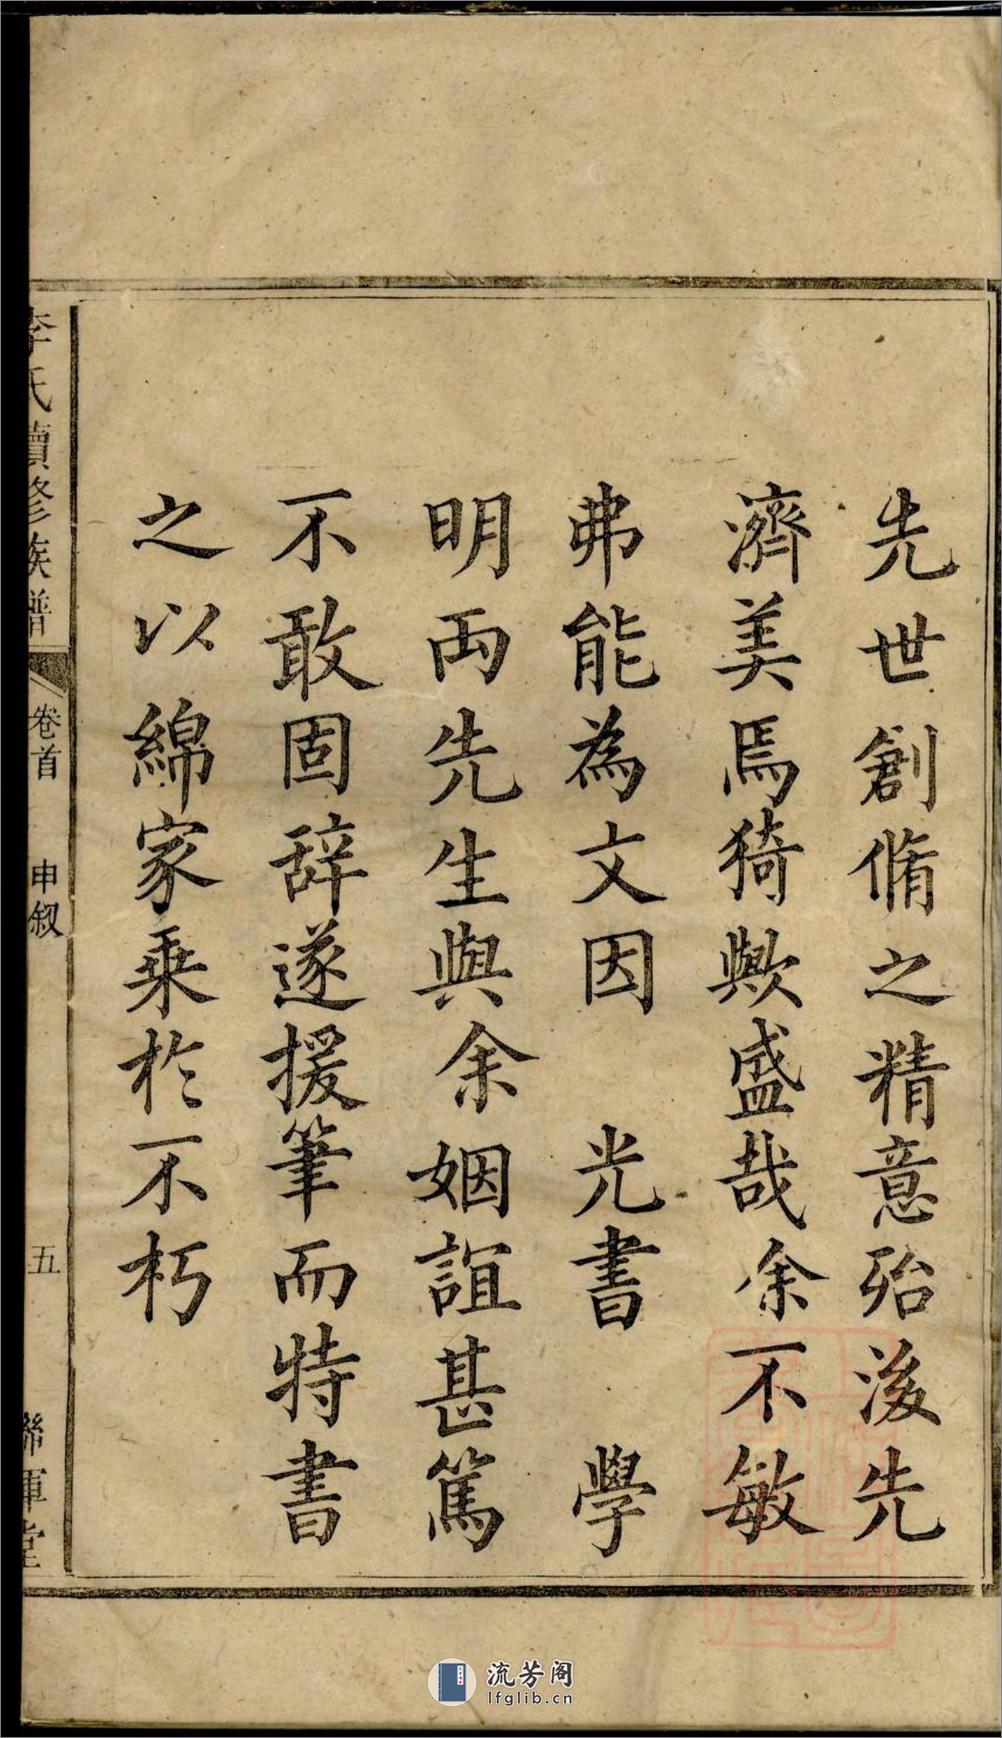 先世創脩之精意殆後先
濟美焉猗歟盛哉余不敏
弗能為文因　光書　學
明両先生與余姻誼甚篤
不敢固辞遂援筆而特書
之以綿家乗於不朽
李氏續修族譜
卷首
申叙
五
聯軍堂
流芳阁
lfglib.cn